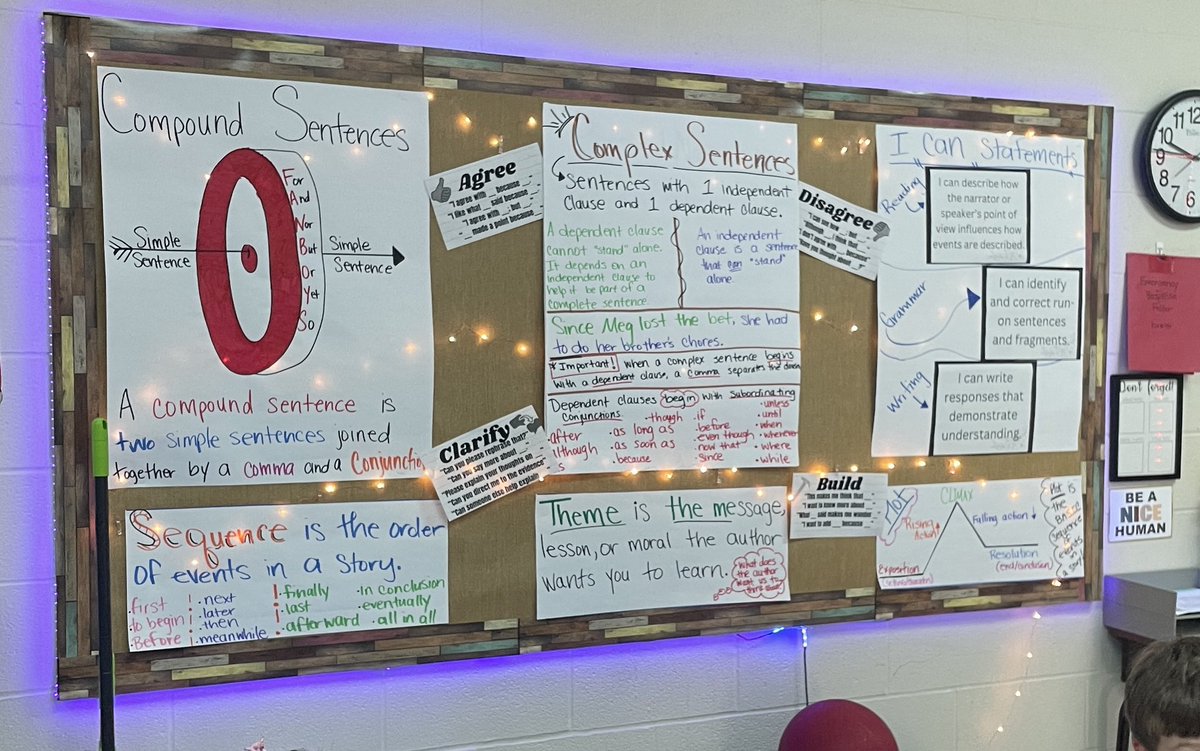 Compound Sentences
For
And
Nor
But
Or
Yet
So
Simple
Sentence
Simple
Sentence
A compound sentence is
two simple sentences joined
together by a comma and a Conjunction
Agree
"I agree with __ because __
"I like what __ said because __
"I agree with __ but __
made a point because
Complex Sentences
Sentences with 1 independent
Clause and 1 dependent clause.
A dependent clause
cannot "stand" alone.
It depends on an
independent clause to
help it be part of a
complete sentence.
An independent
clause is a sentence
that can "stand"
alone.
Since Meg lost the bet, she had
to do her brother's chores.
*Important! When a complex sentence begins
with a dependent clause, a comma separates the
Dependent clauses begin with subordinating
conjunctions
•after
although
•though
•as long as
•as soon as
•because
•if
•before
•even though
•now that
•since
•unless
•until
•when
•whenever
•where
•while
Disagree
I Can Statements
Reading
I can describe how
the narrator or
speaker's point of
view influences how
events are described.
Grammar
I can identify
and correct run-
on sentences
and fragments.
Writing
I can write
responses that
demonstrate
understanding.
Clarify
"Can you please rephrase that?"
"Can you say more about
"Please explain your thoughts on
"Can you direct me to the evidence"
"Can someone else help explain
Build
"This makes me think that
"I want to know more about
"What __ said makes me wonder
"I want to add __ because
Sequence is the order
of events in a story.
•first
•to begin
•Before
•next
•later
•then
•meanwhile
•finally
•last
•afterward
•In conclusion
•eventually
•all in all
Theme is the message,
lesson, or moral the author
wants you to learn.
What does
the author
want us to
Plot
Climax
Rising
Action
Falling action
Exposition
Resolution
(end/conclusion)
Plot is
the
Sequence
events
a story!
11 12
10
9
8
7 6
Emergency
Response
Don't forget!
BE A
NICE
HUMAN